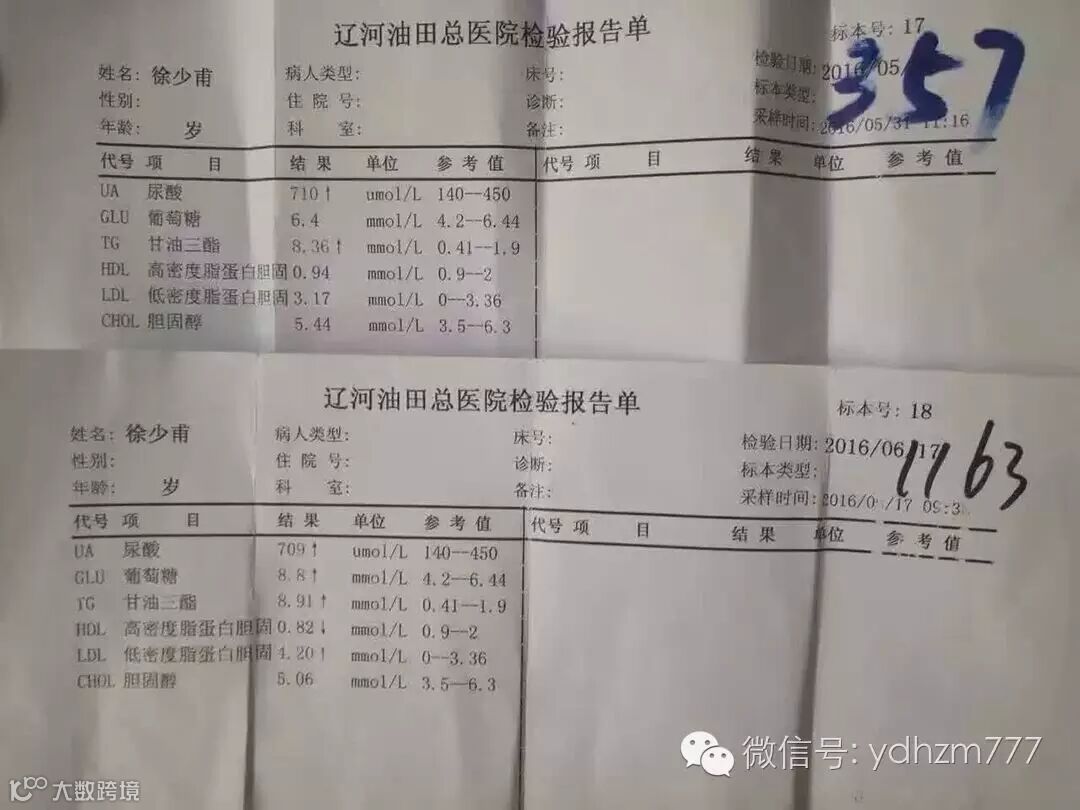 辽河油田总医院检验报告单
标本号: 17
357
姓名: 徐少甫 病人类型: 床号: 检验日期: 2016/05/
性别: 住 院 号: 诊断: 标本类型:
年龄: 岁 科 室: 备注: 采样时间: 2016/05/31 11:16
代号 项 目 结 果 单位 参 考 值 代号 项 目 结 果 单位 参 考 值
UA 尿酸 710↑ umol/L 140--450
GLU 葡萄糖 6.4 mmol/L 4.2--6.44
TG 甘油三酯 8.36↑ mmol/L 0.41--1.9
HDL 高密度脂蛋白胆固 0.94 mmol/L 0.9--2
LDL 低密度脂蛋白胆固 3.17 mmol/L 0--3.36
CHOL 胆固醇 5.44 mmol/L 3.5--6.3
辽河油田总医院检验报告单
标本号: 18
1163
姓名: 徐少甫 病人类型: 床号: 检验日期: 2016/06/17
性别: 住 院 号: 诊断: 标本类型:
年龄: 岁 科 室: 备注: 采样时间: 2016/0 /17 09:3
代号 项 目 结 果 单位 参 考 值 代号 项 目 结 果 单位 参 考 值
UA 尿酸 709↑ umol/L 140--450
GLU 葡萄糖 8.8↑ mmol/L 4.2--6.44
TG 甘油三酯 8.91↑ mmol/L 0.41--1.9
HDL 高密度脂蛋白胆固 0.82↓ mmol/L 0.9--2
LDL 低密度脂蛋白胆固 4.20↑ mmol/L 0--3.36
CHOL 胆固醇 5.06 mmol/L 3.5--6.3
微信号: ydhzm777
大数跨境